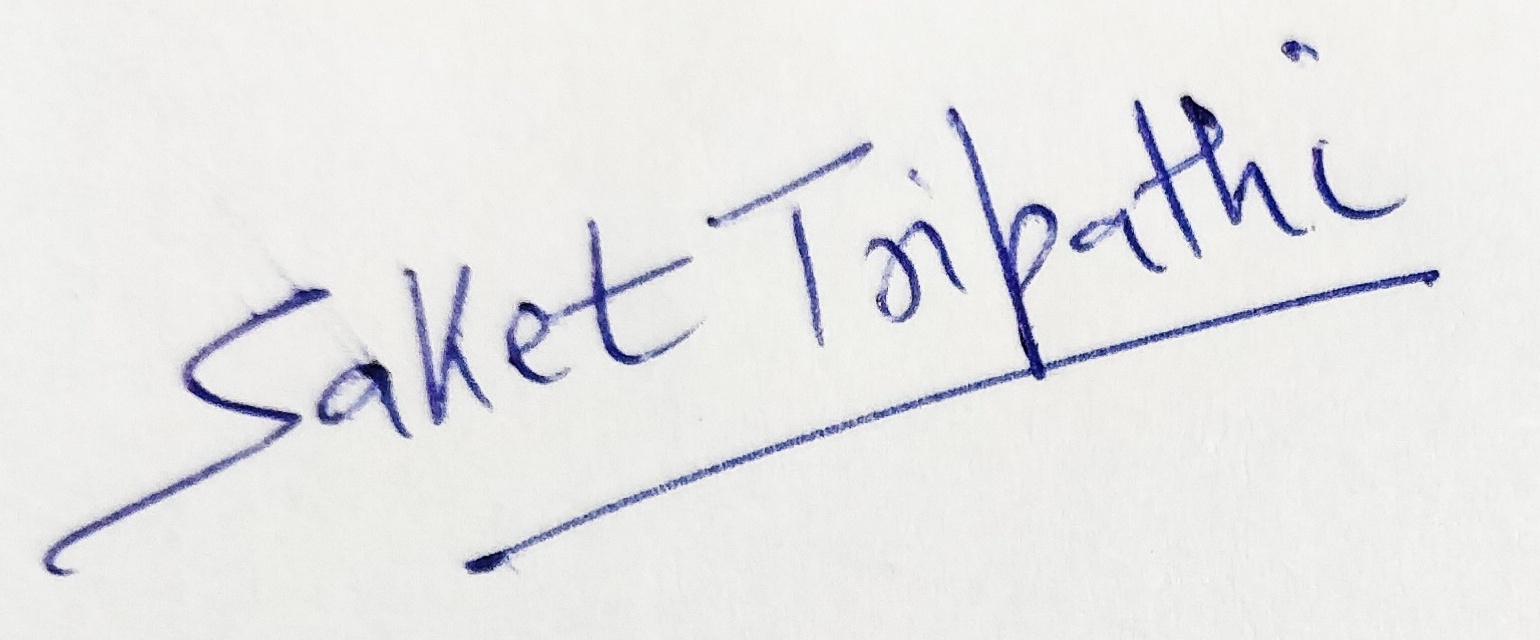 Saket Tripathi